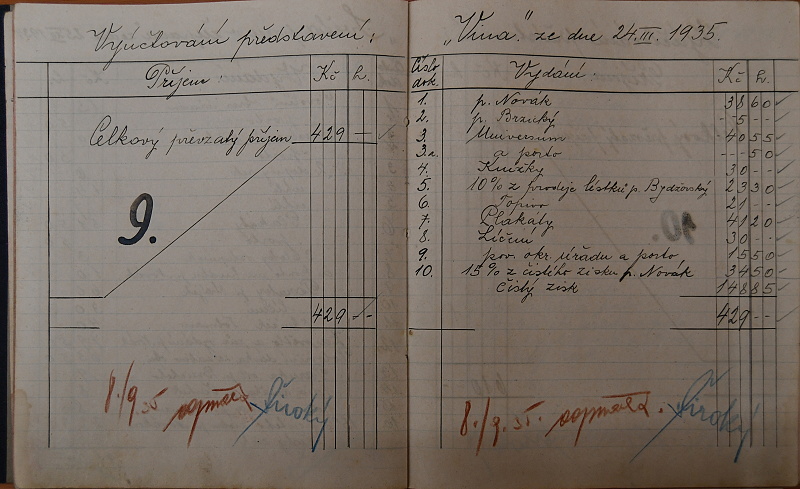 Vyúčtování představení:
Příjem: Kč h.
Celkový převzatý příjem 429 —
9.
429 —
8./9. 35 Široký
„Vina." ze dne 24.III. 1935.
Číslo dok. Vydání: Kč h.
1. p. Novák 38 60
2. p. Brzický - 5 --
3. Universum 40 55
3.a. a porto -- 50
4. Knížky 30 --
5. 10% z prodeje lístků p. Bydžovský 23 30
6. Topivo 21 --
7. Plakáty 41 20
8. Líčení 30 --
9. pov. okr. úřadu a porto 15 50
10. 15% z čistého zisku p. Novák 34 50
Čistý zisk 148 85
429 --
8./9. 35. Široký